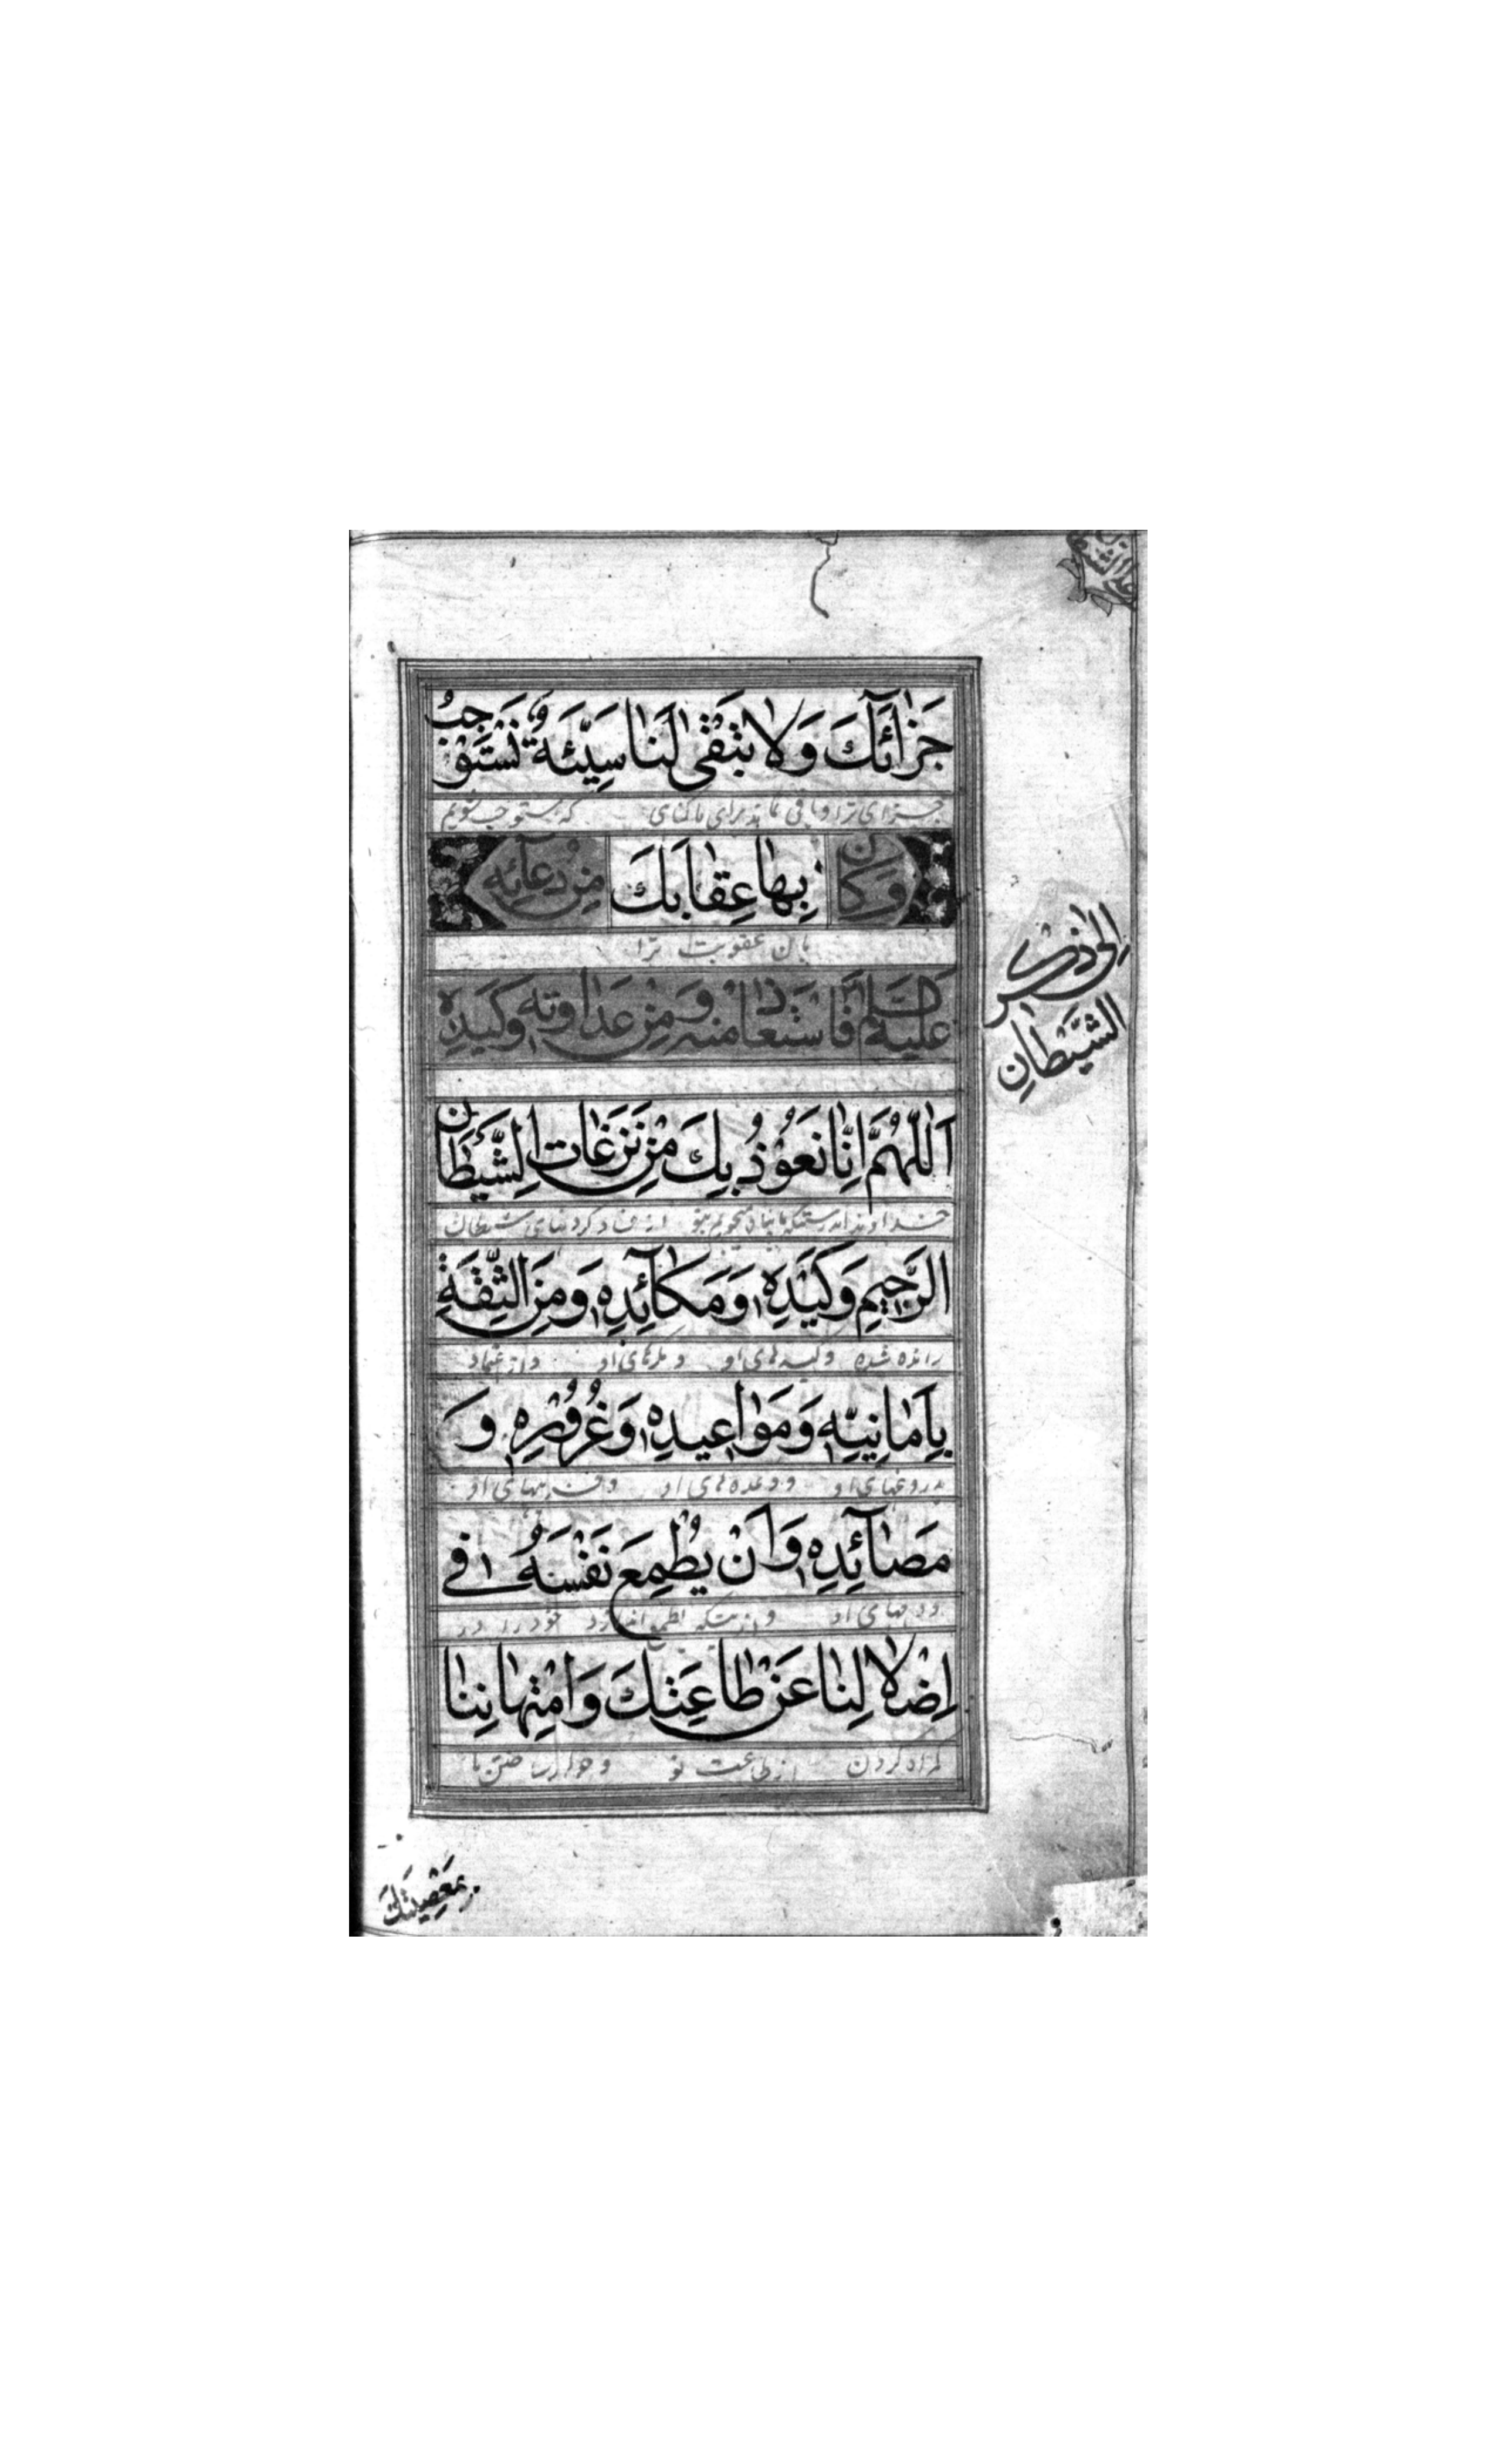 جَزٰائَكَ وَلٰا تَبْقٰى لَنٰا سَيِّئَةٌ نَسْتَوْجِبُ
جزای ترا و باقی نماند برای ما گناهی که مستوجب شویم
وَكٰانَ بِهٰا عِقٰابَكَ مِنْ دُعٰائِهِ
بآن عقوبت ترا
عَلَيْهِ السَّلَام فَاسْتَعٰاذَ مِنْهُ وَمِنْ عَدٰاوَتِهِ وَكَيْدِهِ
إِلٰى ذِكْرِ
الشَّيْطٰانِ
اَللّٰهُمَّ اِنّٰا نَعُوْذُ بِكَ مِنْ نَزَغٰاتِ الشَّيْطٰانِ
خداوندا بدرستیکه ما پناه میجوییم بتو از فساد کردنهای شیطان
الرَّجِيمِ وَكَيْدِهِ وَمَكٰآئِدِهِ وَمِنَ الثِّقَةِ
رانده شده و کیدهای او و مکرهای او و از اعتماد
بِاَمٰانِيِّهِ وَمَوٰاعِيدِهِ وَغُرُوْرِهِ وَ
بدروغهای او و وعده های او و فریبهای او
مَصٰآئِدِهِ وَاَنْ يُطْمِعَ نَفْسَهُ فِي
و دامهای او و از اینکه بطمع اندازد خود را در
اِضْلٰالِنٰا عَنْ طٰاعَتِكَ وَامْتِهٰانِنٰا
گمراه کردن از طاعت تو و خوار ساختن ما
بِمَعْصِيَتِكَ